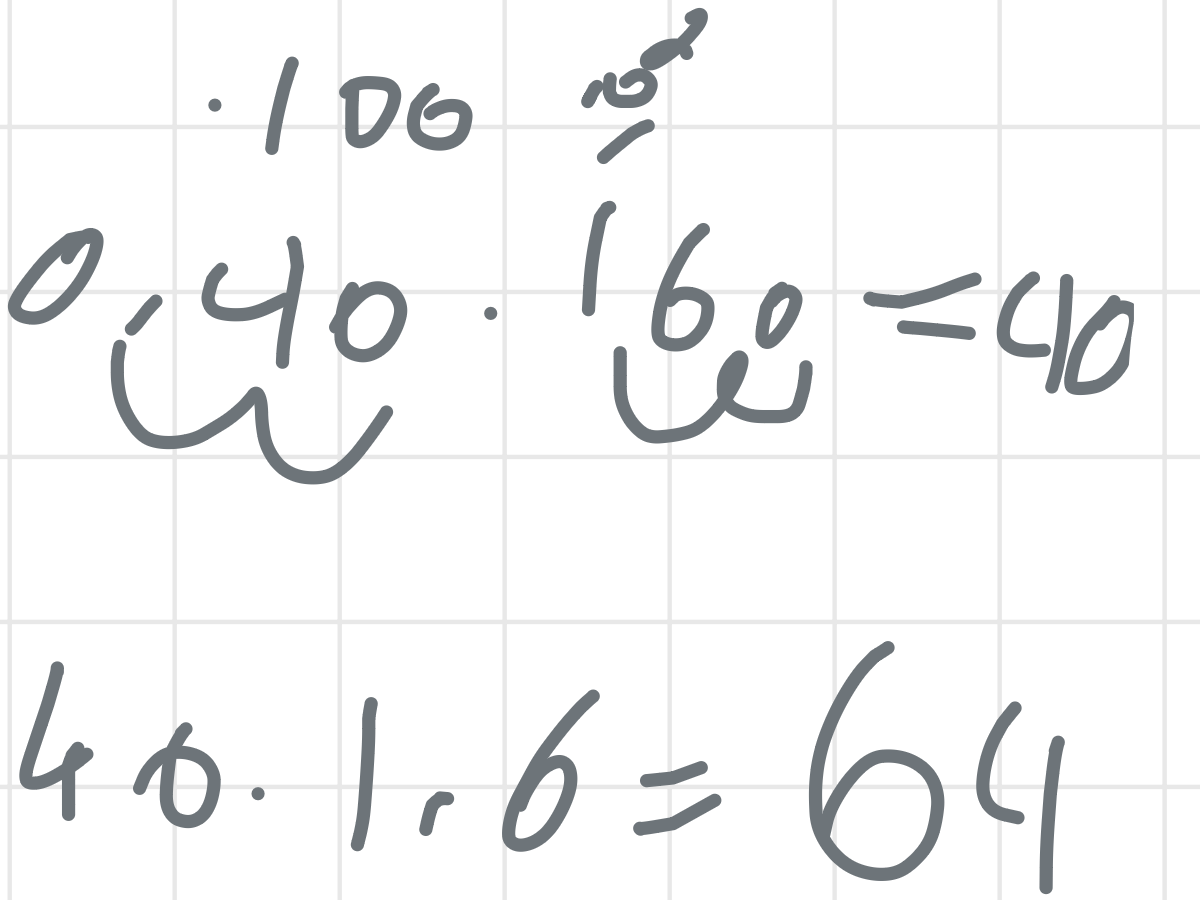 · 100 100
0,40 · 160 = 40
40 · 1,6 = 64